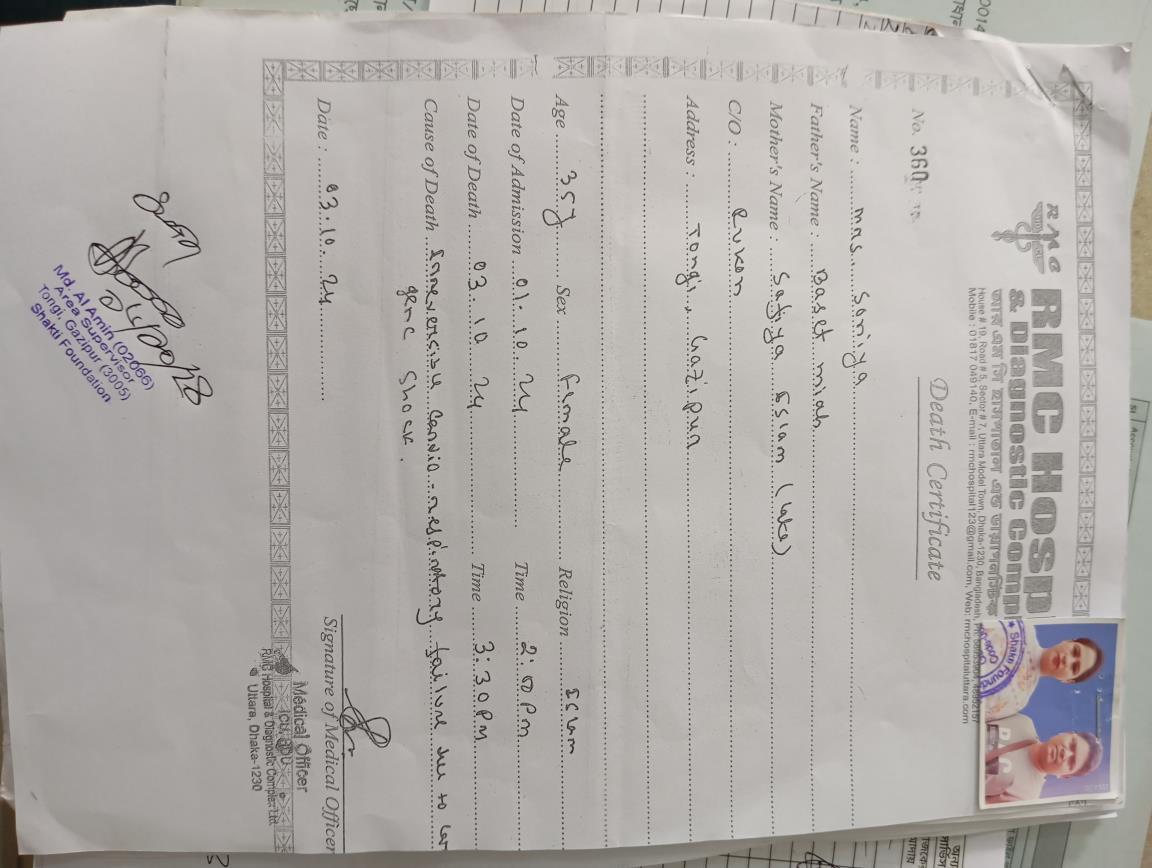 RMC
RMC Hosp
& Diagnostic Comp
আর এম সি হাসপাতাল এন্ড ডায়াগনস্টিক
House # 19, Road # 5, Sector # 7, Uttara Model Town, Dhaka-1230, Bangladesh,
Mobile : 01817 049140, E-mail : rmchospital123@gmail.com, Web: rmchospitaluttara.com
Death Certificate
No. 360
Name : Mrs. Soniya
Father's Name : Baset miah
Mother's Name : Safiya Islam (late)
C/O : Rukon
Address : Tongi, Gazipur
Age 35y Sex Female Religion Islam
Date of Admission 01.10.24 Time 2:00 Pm
Date of Death 03.10.24 Time 3:30 Pm
Cause of Death Irreversible Cardio-respiratory failure due to
genic Shock.
Date : 03.10.24
Signature of Medical Officer
Medical Officer
ICU
RMC Hospital & Diagnostic Complex Ltd.
Uttara, Dhaka-1230
Md. Al Amin (02066)
Area Supervisor
Tongi, Gazipur (3005)
Shakti Foundation